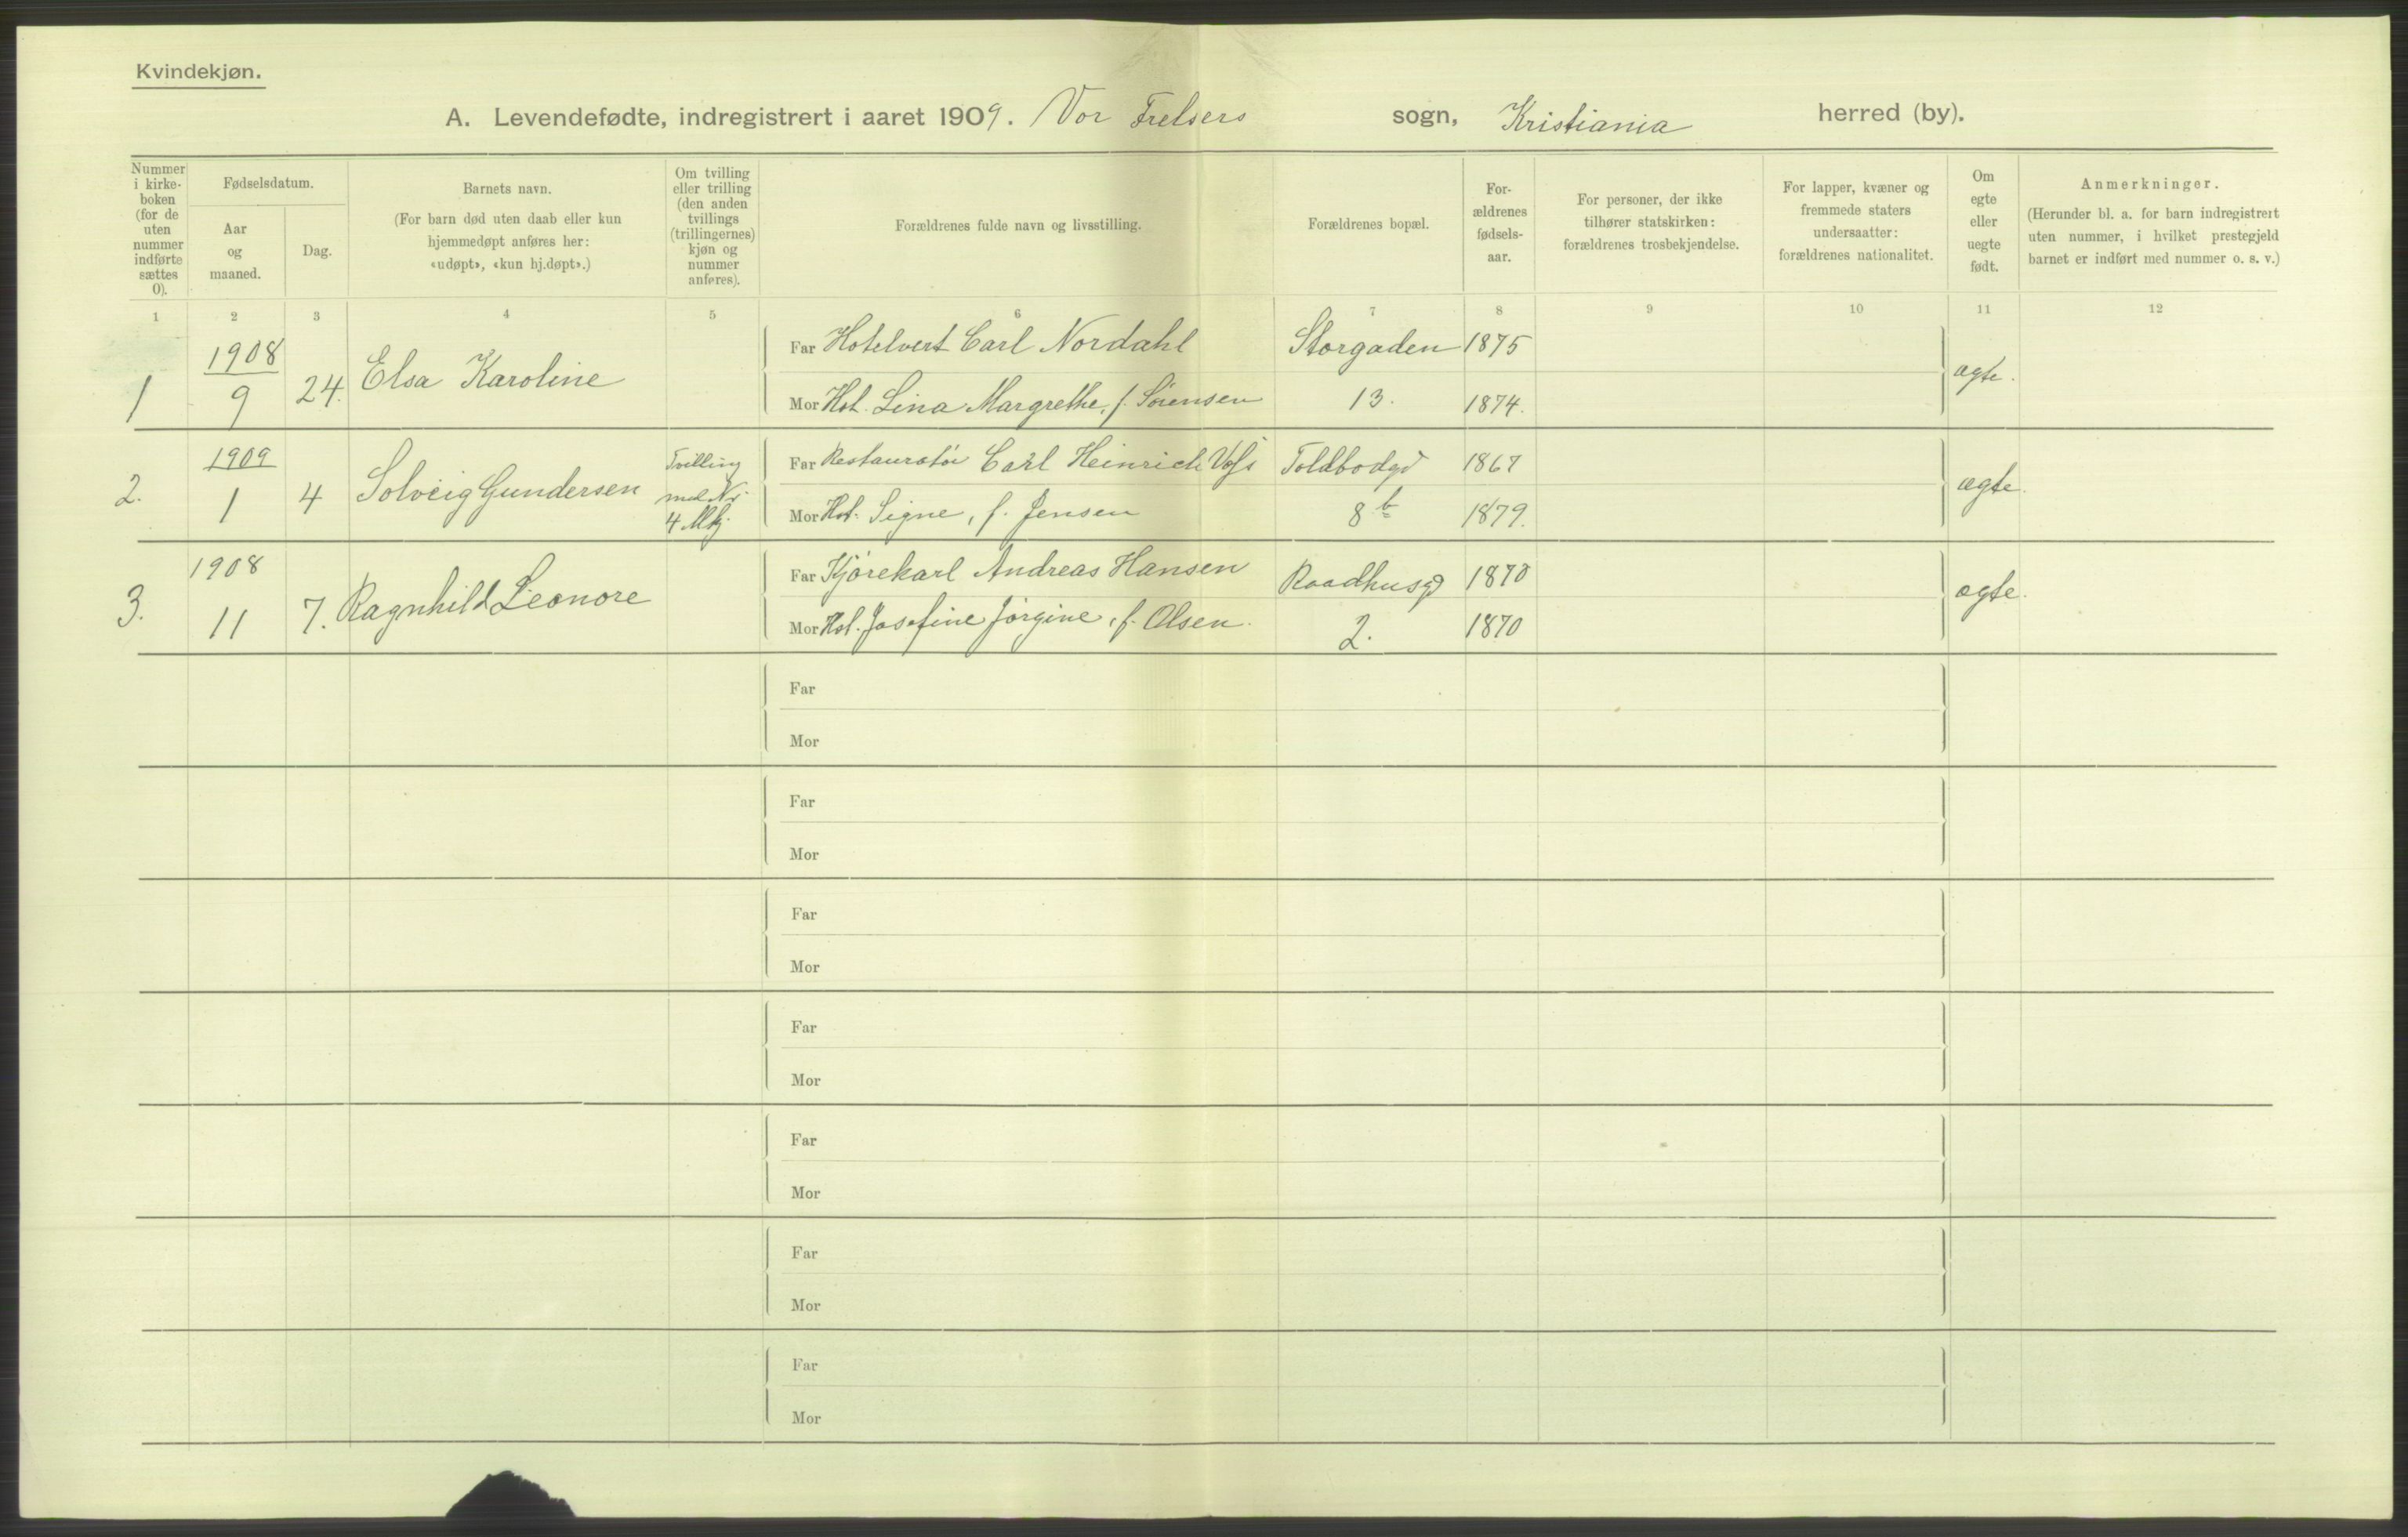 Kvindekjøn.
A. Levendefødte, indregistrert i aaret 1909. Vor Frelsers sogn, Kristiania herred (by).
Nummer i kirke-boken (for de uten nummer indførte sættes 0).
Fødselsdatum.
Aar og maaned.
Dag.
Barnets navn.
(For barn død uten daab eller kun hjemmedøpt anføres her: «udøpt», «kun hj.døpt».)
Om tvilling eller trilling (den anden tvillings (trillingernes) kjøn og nummer anføres).
Forældrenes fulde navn og livsstilling.
Forældrenes bopæl.
For-ældrenes fødsels-aar.
For personer, der ikke tilhører statskirken: forældrenes trosbekjendelse.
For lapper, kvæner og fremmede staters undersaatter: forældrenes nationalitet.
Om egte eller uegte født.
Anmerkninger.
(Herunder bl. a. for barn indregistrert uten nummer, i hvilket prestegjeld barnet er indført med nummer o. s. v.)
1 2 3 4 5 6 7 8 9 10 11 12
1 1908 9 24. Elsa Karoline
Far Hotelvert Carl Nordahl Storgaden 1875
Mor Hst. Lina Margrethe, f. Sørensen 13. 1874.
ægte.
2. 1909 1 4 Solveig Gundersen
Tvilling
med Nr.
4 Mkj.
Far Restauratør Carl Heinrich Voss Toldbodgd 1867
Mor Hst. Signe, f. Jensen 8 b 1879.
ægte.
3. 1908 11 7. Ragnhild Leonore
Far Kjørekarl Andreas Hansen Raadhusgd 1870
Mor Hst. Josefine Jørgine, f. Olsen. 2. 1870
ægte.
Far
Mor
Far
Mor
Far
Mor
Far
Mor
Far
Mor
Far
Mor
Far
Mor